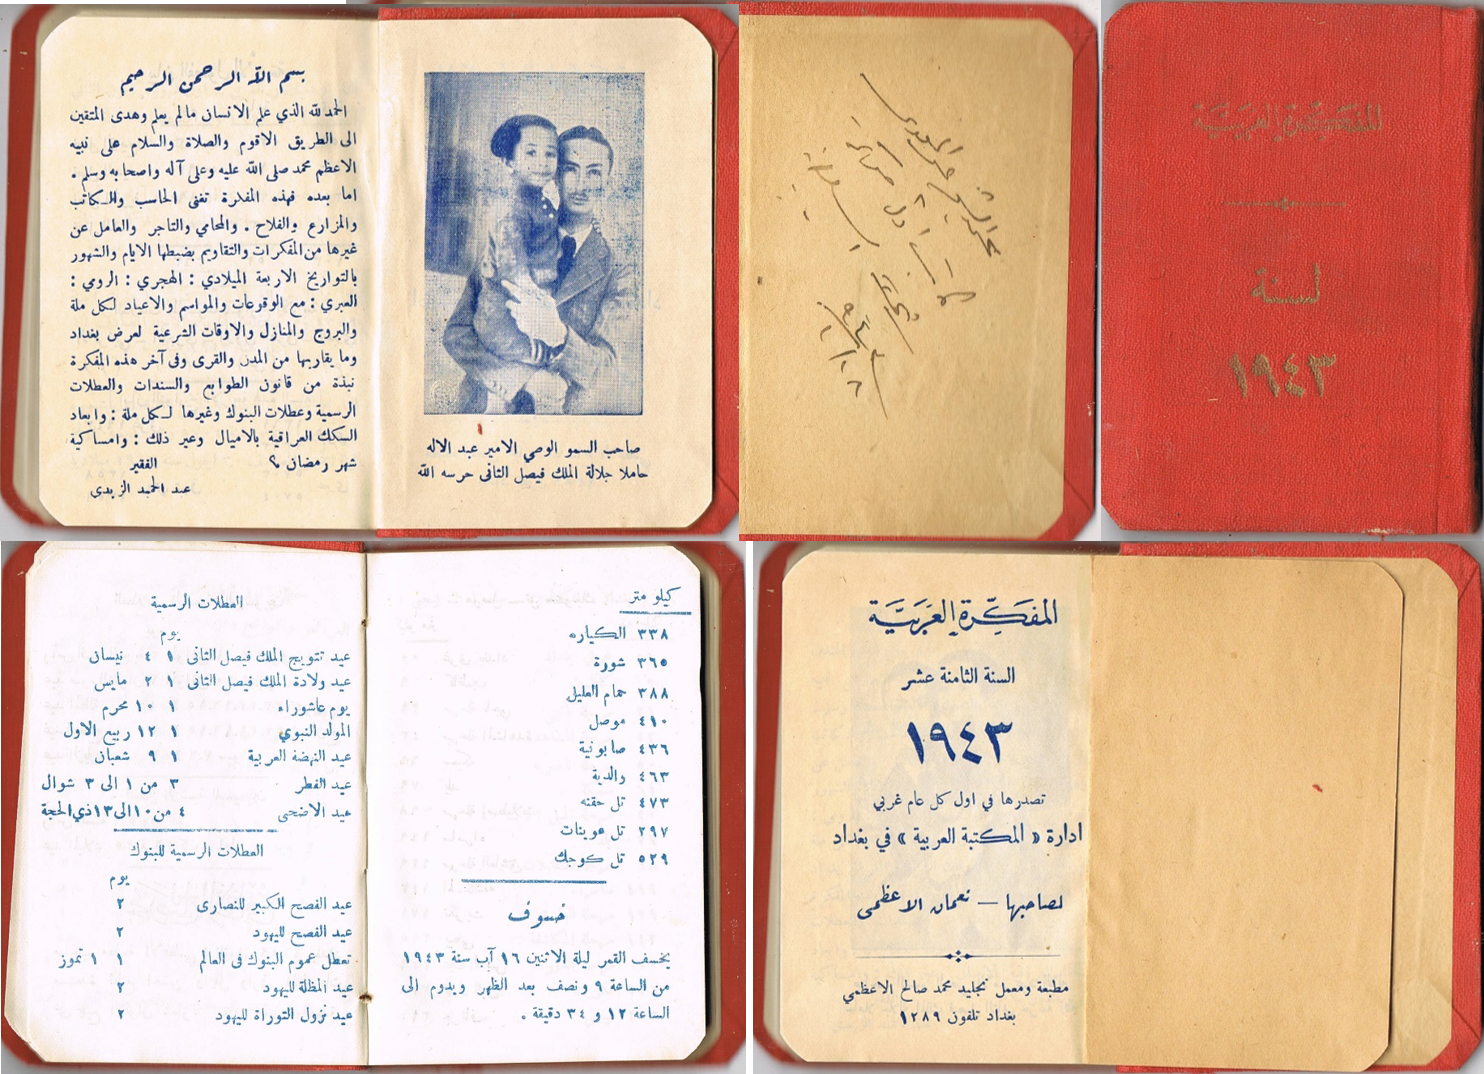 المفكرة العربية
لسنة
١٩٤٣
بسم الله الرحمن الرحيم
الحمد لله الذي علم الانسان مالم يعلم وهدى المتقين
الى الطريق الاقوم والصلاة والسلام على نبيه
الاعظم محمد صلى الله عليه وعلى آله واصحابه وسلم .
اما بعده فهذه المفكرة تغنى الحاسب والكاتب
والمزارع والفلاح . والمحامي والتاجر والعامل عن
غيرها من المفكرات والتقاويم بضبطها الايام والشهور
بالتواريخ الاربعة الميلادي : الهجري : الرومي :
العبري : مع الوقوعات والمواسم والاعياد لكل ملة
والبروج والمنازل والاوقات الشرعية لعرض بغداد
وما يقاربها من المدن والقرى وفى آخر هذه المفكرة
نبذة من قانون الطوابع والسندات والعطلات
الرسمية وعطلات البنوك وغيرها لكل ملة : وابعاد
السكك العراقية بالاميال وغير ذلك : وامساكية
شهر رمضان ؟
الفقير
عبد الحميد الزيدى
صاحب السمو الوصي الامير عبد الاله
حاملا جلالة الملك فيصل الثانى حرسه الله
المفكِّرة العَرَبيَّة
السنة الثامنة عشر
١٩٤٣
تصدرها في اول كل عام غربي
ادارة « المكتبة العربية » في بغداد
لصاحبها — نعمان الاعظمى
مطبعة ومعمل تجليد محمد صالح الاعظمي
بغداد تلفون ١٢٨٩
كيلو متر
٣٣٨ الكياره
٣٦٥ شورة
٣٨٨ حمام العليل
٤١٠ موصل
٤٣٦ صابونية
٤٦٣ والدية
٤٧٣ تل حقنه
٢٩٧ تل عوينات
٥٢٩ تل كوجك
خسوف
يخسف القمر ليلة الاثنين ١٦ آب سنة ١٩٤٣
من الساعة ٩ ونصف بعد الظهر ويدوم الى
الساعة ١٢ و ٣٤ دقيقة .
العطلات الرسمية
يوم
عيد تتويج الملك فيصل الثانى ١ ٤ نيسان
عيد ولادة الملك فيصل الثانى ١ ٢ مايس
يوم عاشوراء ١ ١٠ محرم
المولد النبوي ١ ١٢ ربيع الاول
عيد النهضة العربية ١ ٩ شعبان
عيد الفطر ٣ من ١ الى ٣ شوال
عيد الاضحى ٤ من ١٠ الى ١٣ ذي الحجة
العطلات الرسمية للبنوك
يوم
عيد الفصح الكبير للنصارى ٢
عيد الفصح لليهود ٢
تعطل عموم البنوك فى العالم ١ ١ تموز
عيد المظلة لليهود ٢
عيد نزول التوراة لليهود ٢